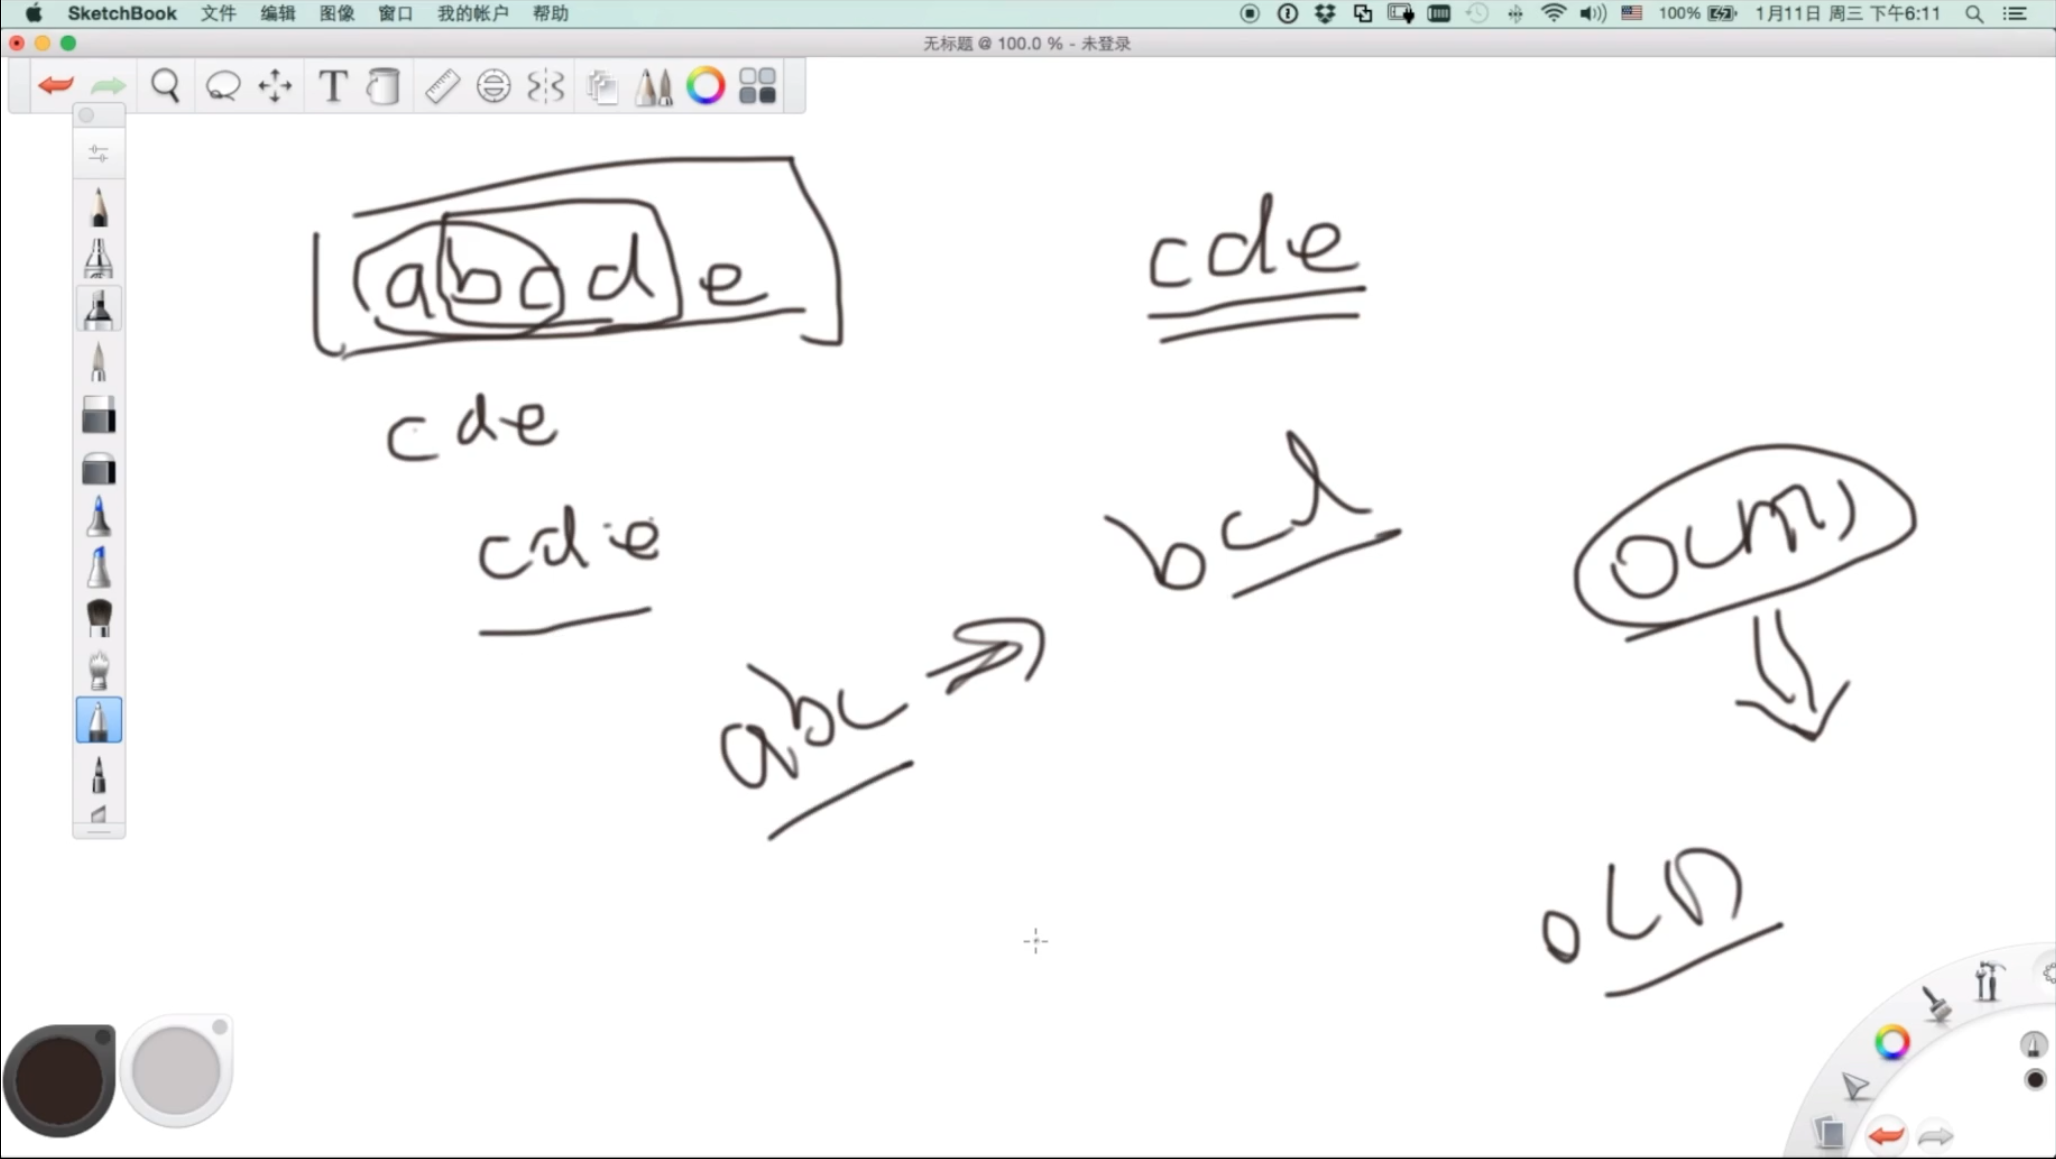 SketchBook 文件 编辑 图像 窗口 我的帐户 帮助 100% 1月11日 周三 下午6:11
无标题 @ 100.0 % - 未登录
T
abcde
cde
cde
cde
bcd
O(m)
abc
O(n)